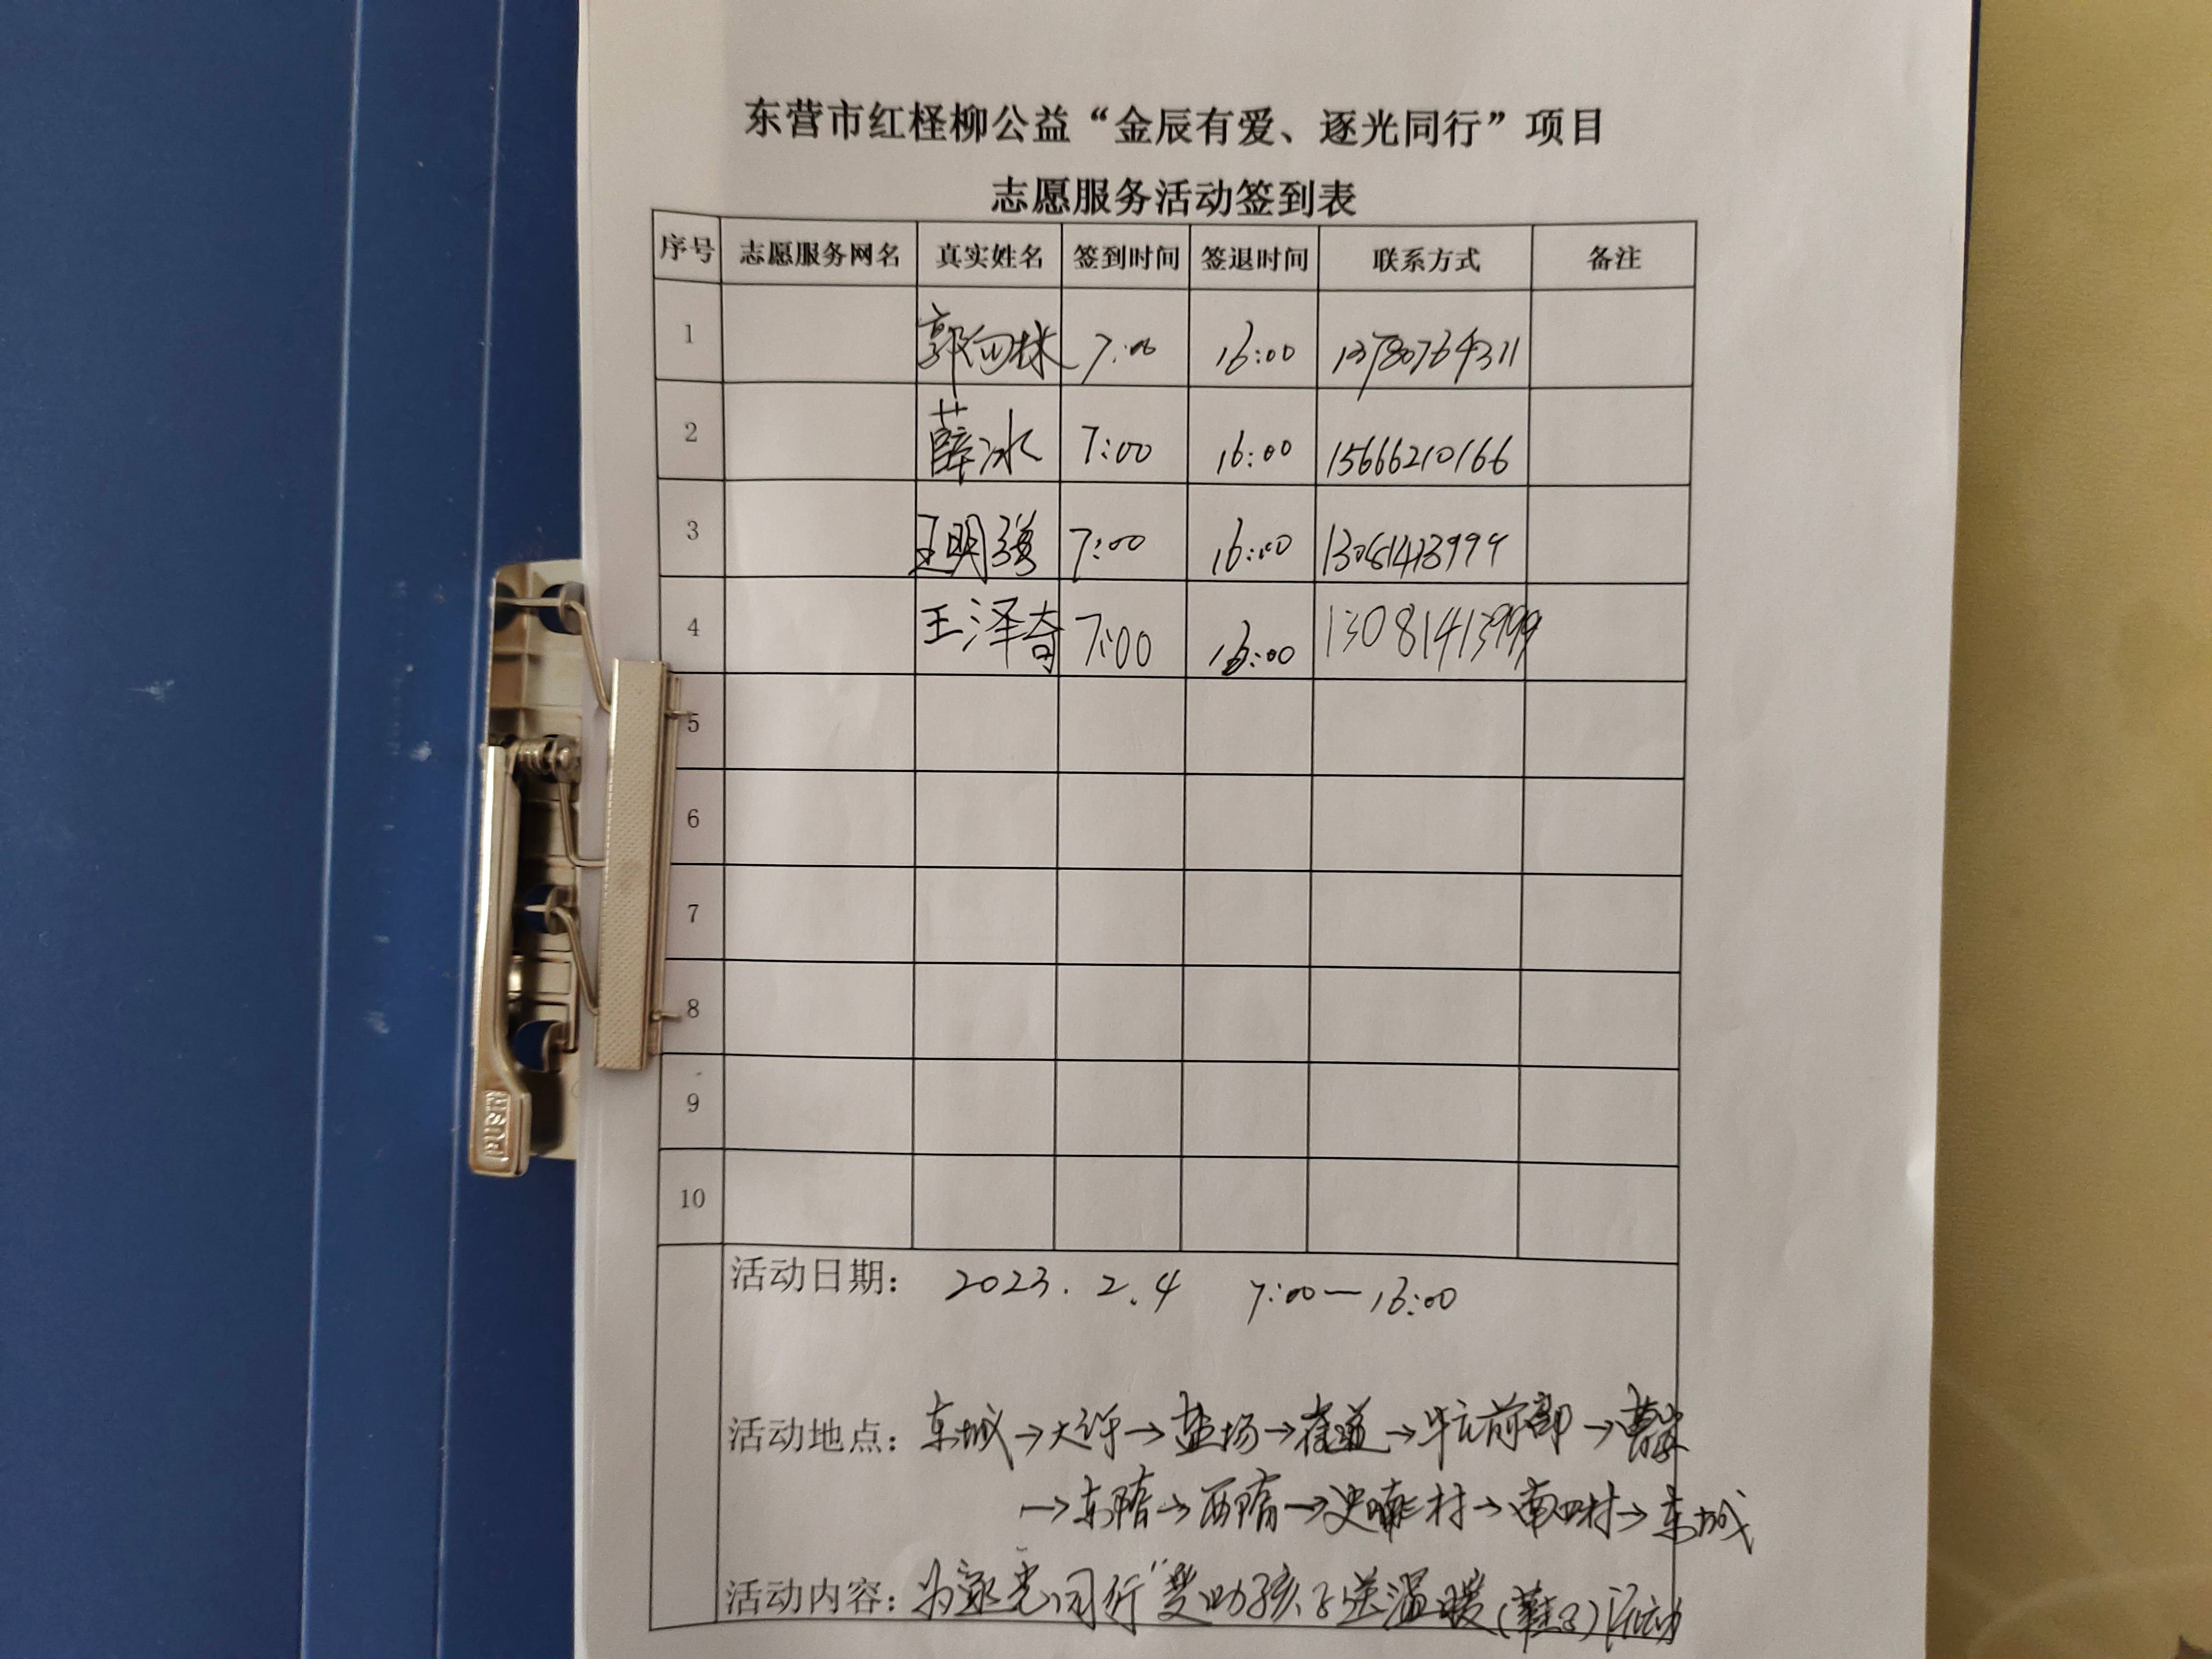 东营市红柽柳公益“金辰有爱、逐光同行”项目
志愿服务活动签到表
序号 志愿服务网名 真实姓名 签到时间 签退时间 联系方式 备注
1 郭向林 7:00 16:00 13780764311
2 薛冰 7:00 16:00 15666210166
3 王明强 7:00 16:00 13081413999
4 王泽奇 7:00 16:00 13081413999
5
6
7
8
9
10
活动日期: 2023.2.4 7:00—16:00
活动地点: 东城→大许→盐场→街道→牛前部→
→东隋→西隋→史村→南四村→东城
活动内容: 为逐光同行"受助孩子送温暖(鞋子)活动
PUSH